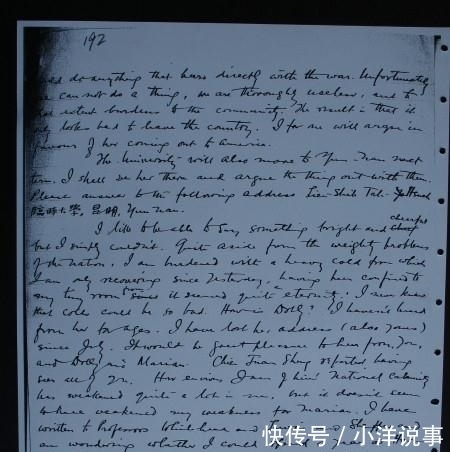 192
do anything that bears directly with the war. Unfortunately
we can not do a thing, we are thoroughly useless, and to
extent burdens to the community. The result is that it
only looks bad to leave the country. I for one will argue in
favours of her coming out to America.
The University will also move to Yun Nan next
term. I shall see her there and argue the thing out with them.
Please answer to the following address
臨時大學, 昆明, Yun Nan.
I like to be able to say something bright and cheerful
but I simply couldn't. Quite aside from the weighty problems
of the nation, I am burdened with a heavy cold from which
I am only recovering since yesterday, having been confined to
my tiny room since it seemed quite eternity. I never knew
that colds could be so bad. How is Dolly? I haven't heard
from her for ages. I have lost her address (also yours)
since July. It would be great pleasure to hear from you,
and Dolly and Marian. having
seen all of you. How envious I am of him! National calamity
has weakened quite a lot in me, but it doesn't seem
to have weakened my weakness for Marian. I have
written to Professors Whitehead and Sheffer and
am wondering whether I could
快传号 / 小洋说事